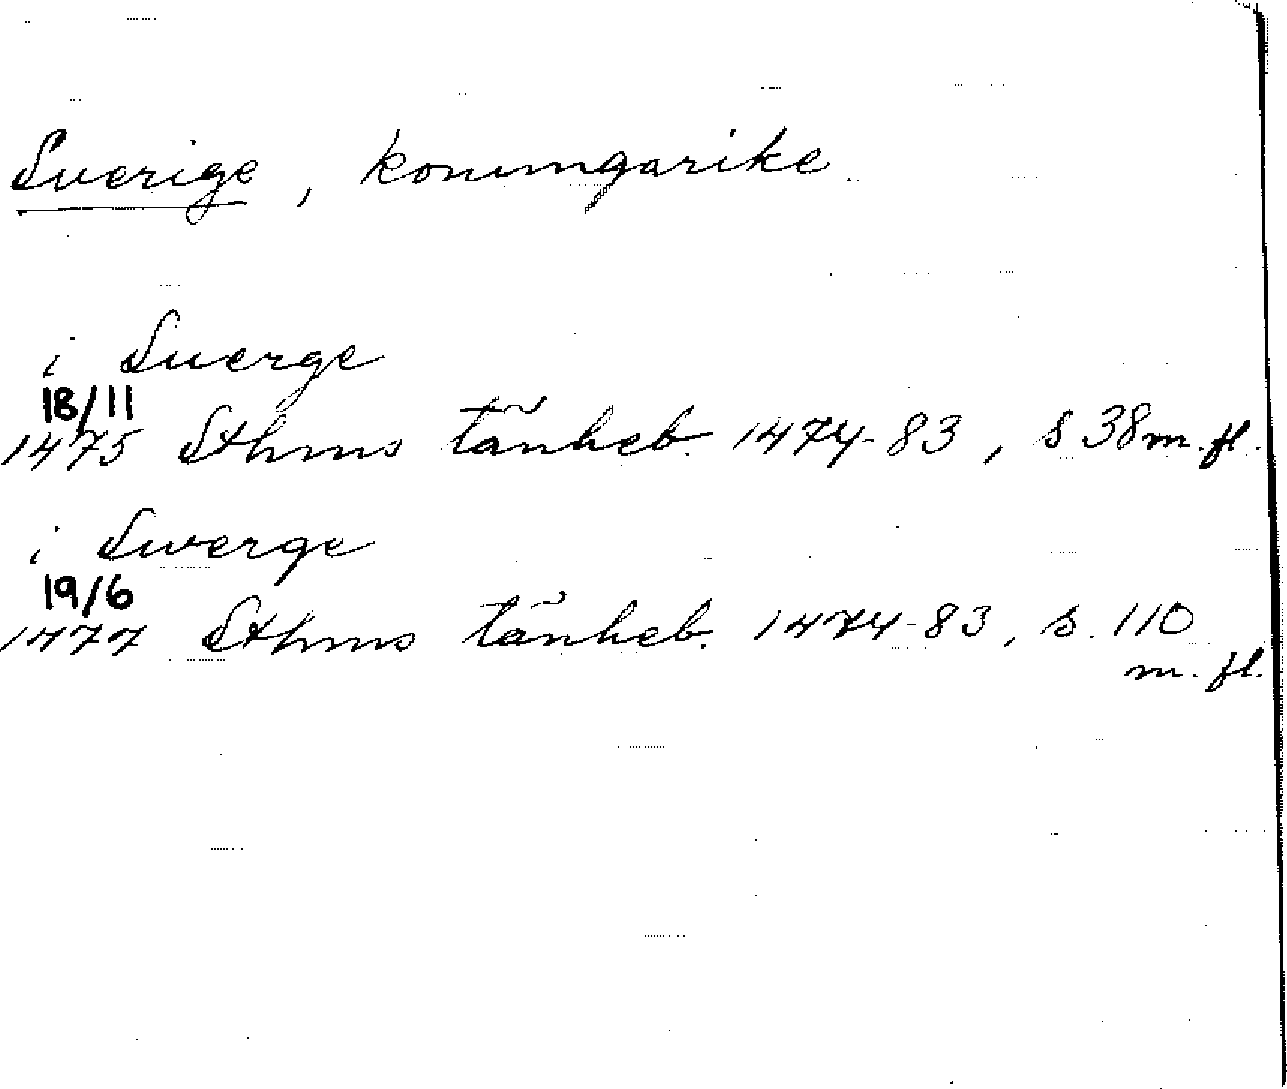 Sverige, konungarike.
i Suerge
18/11
1475 Sthms tänkeb. 1474-83, s 38 m. fl.
i Swerge
19/6
1477 Sthms tänkeb. 1474-83, s. 110
m. fl.